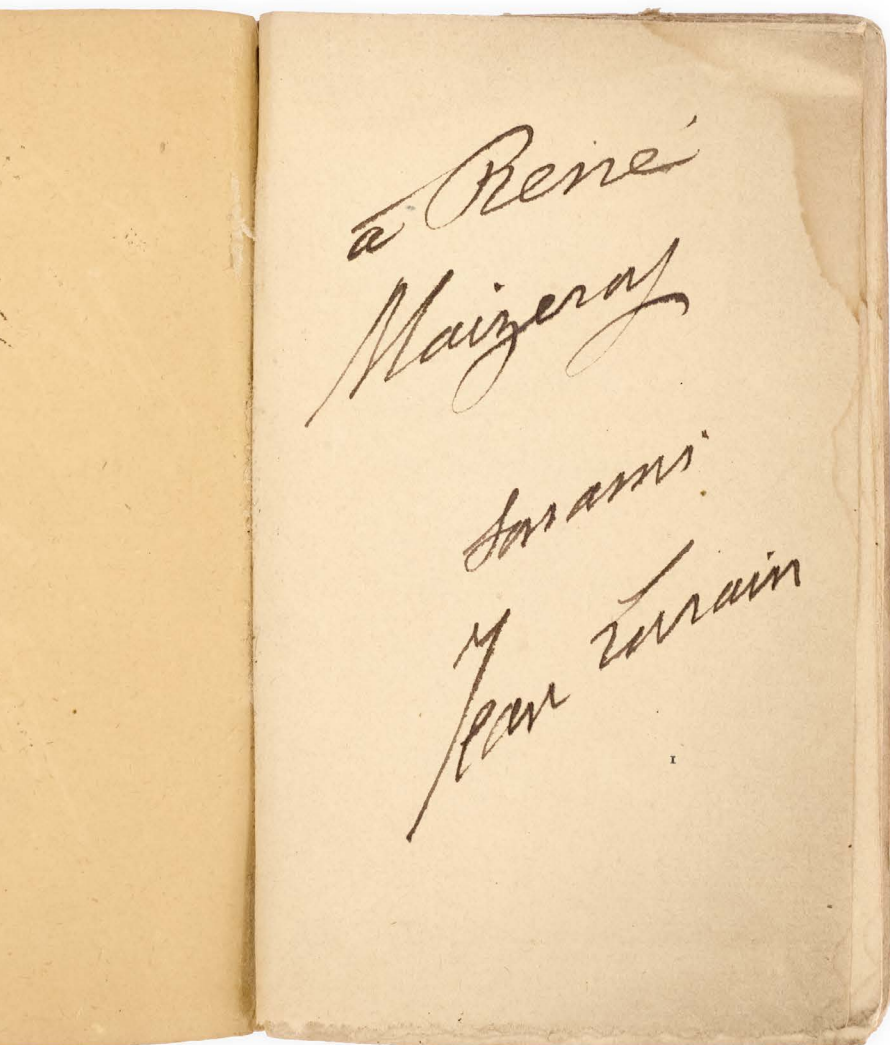 à René
Maizeroy
son ami
Jean Lorrain
1